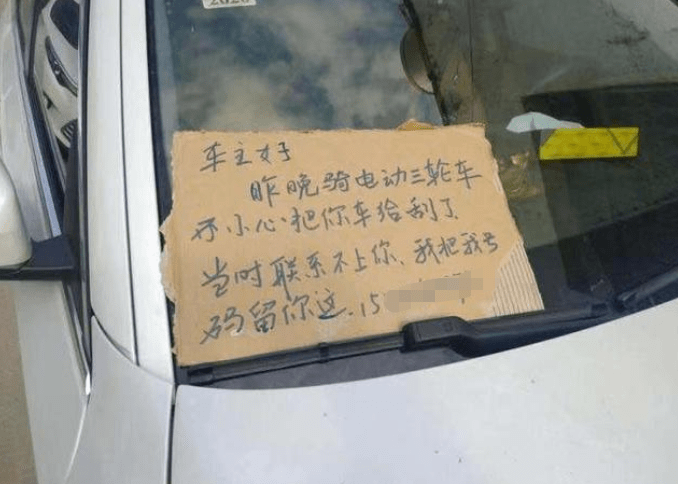 车主好
昨晚骑电动三轮车
不小心把你车给刮了
当时联系不上你、我把我号
码留你这.15